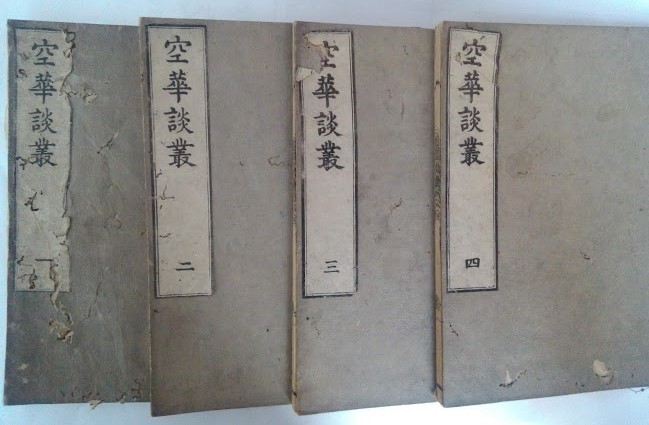 空華談叢 一
空華談叢 二
空華談叢 三
空華談叢 四